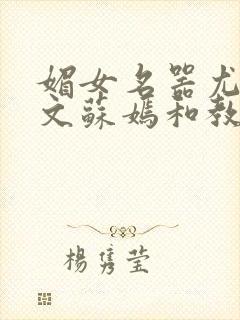 媚女名器尤
文蘇媽和教
楊雋莹